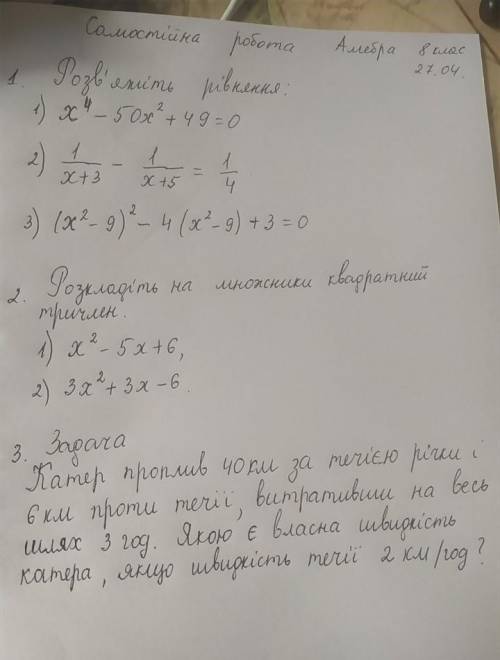 Самостійна робота Алгебра 8 клас
27.04.
1. Розв'яжіть рівняння:
1) x⁴ - 50x² + 49 = 0
2) 1/(x+3) - 1/(x+5) = 1/4
3) (x² - 9)² - 4 (x² - 9) + 3 = 0
2. Розкладіть на множники квадратний
тричлен.
1) x² - 5x + 6,
2) 3x² + 3x - 6.
3. Задача
Катер проплив 40 км за течією річки і
6 км проти течії, витративши на весь
шлях 3 год. Якою є власна швидкість
катера, якщо швидкість течії 2 км/год?